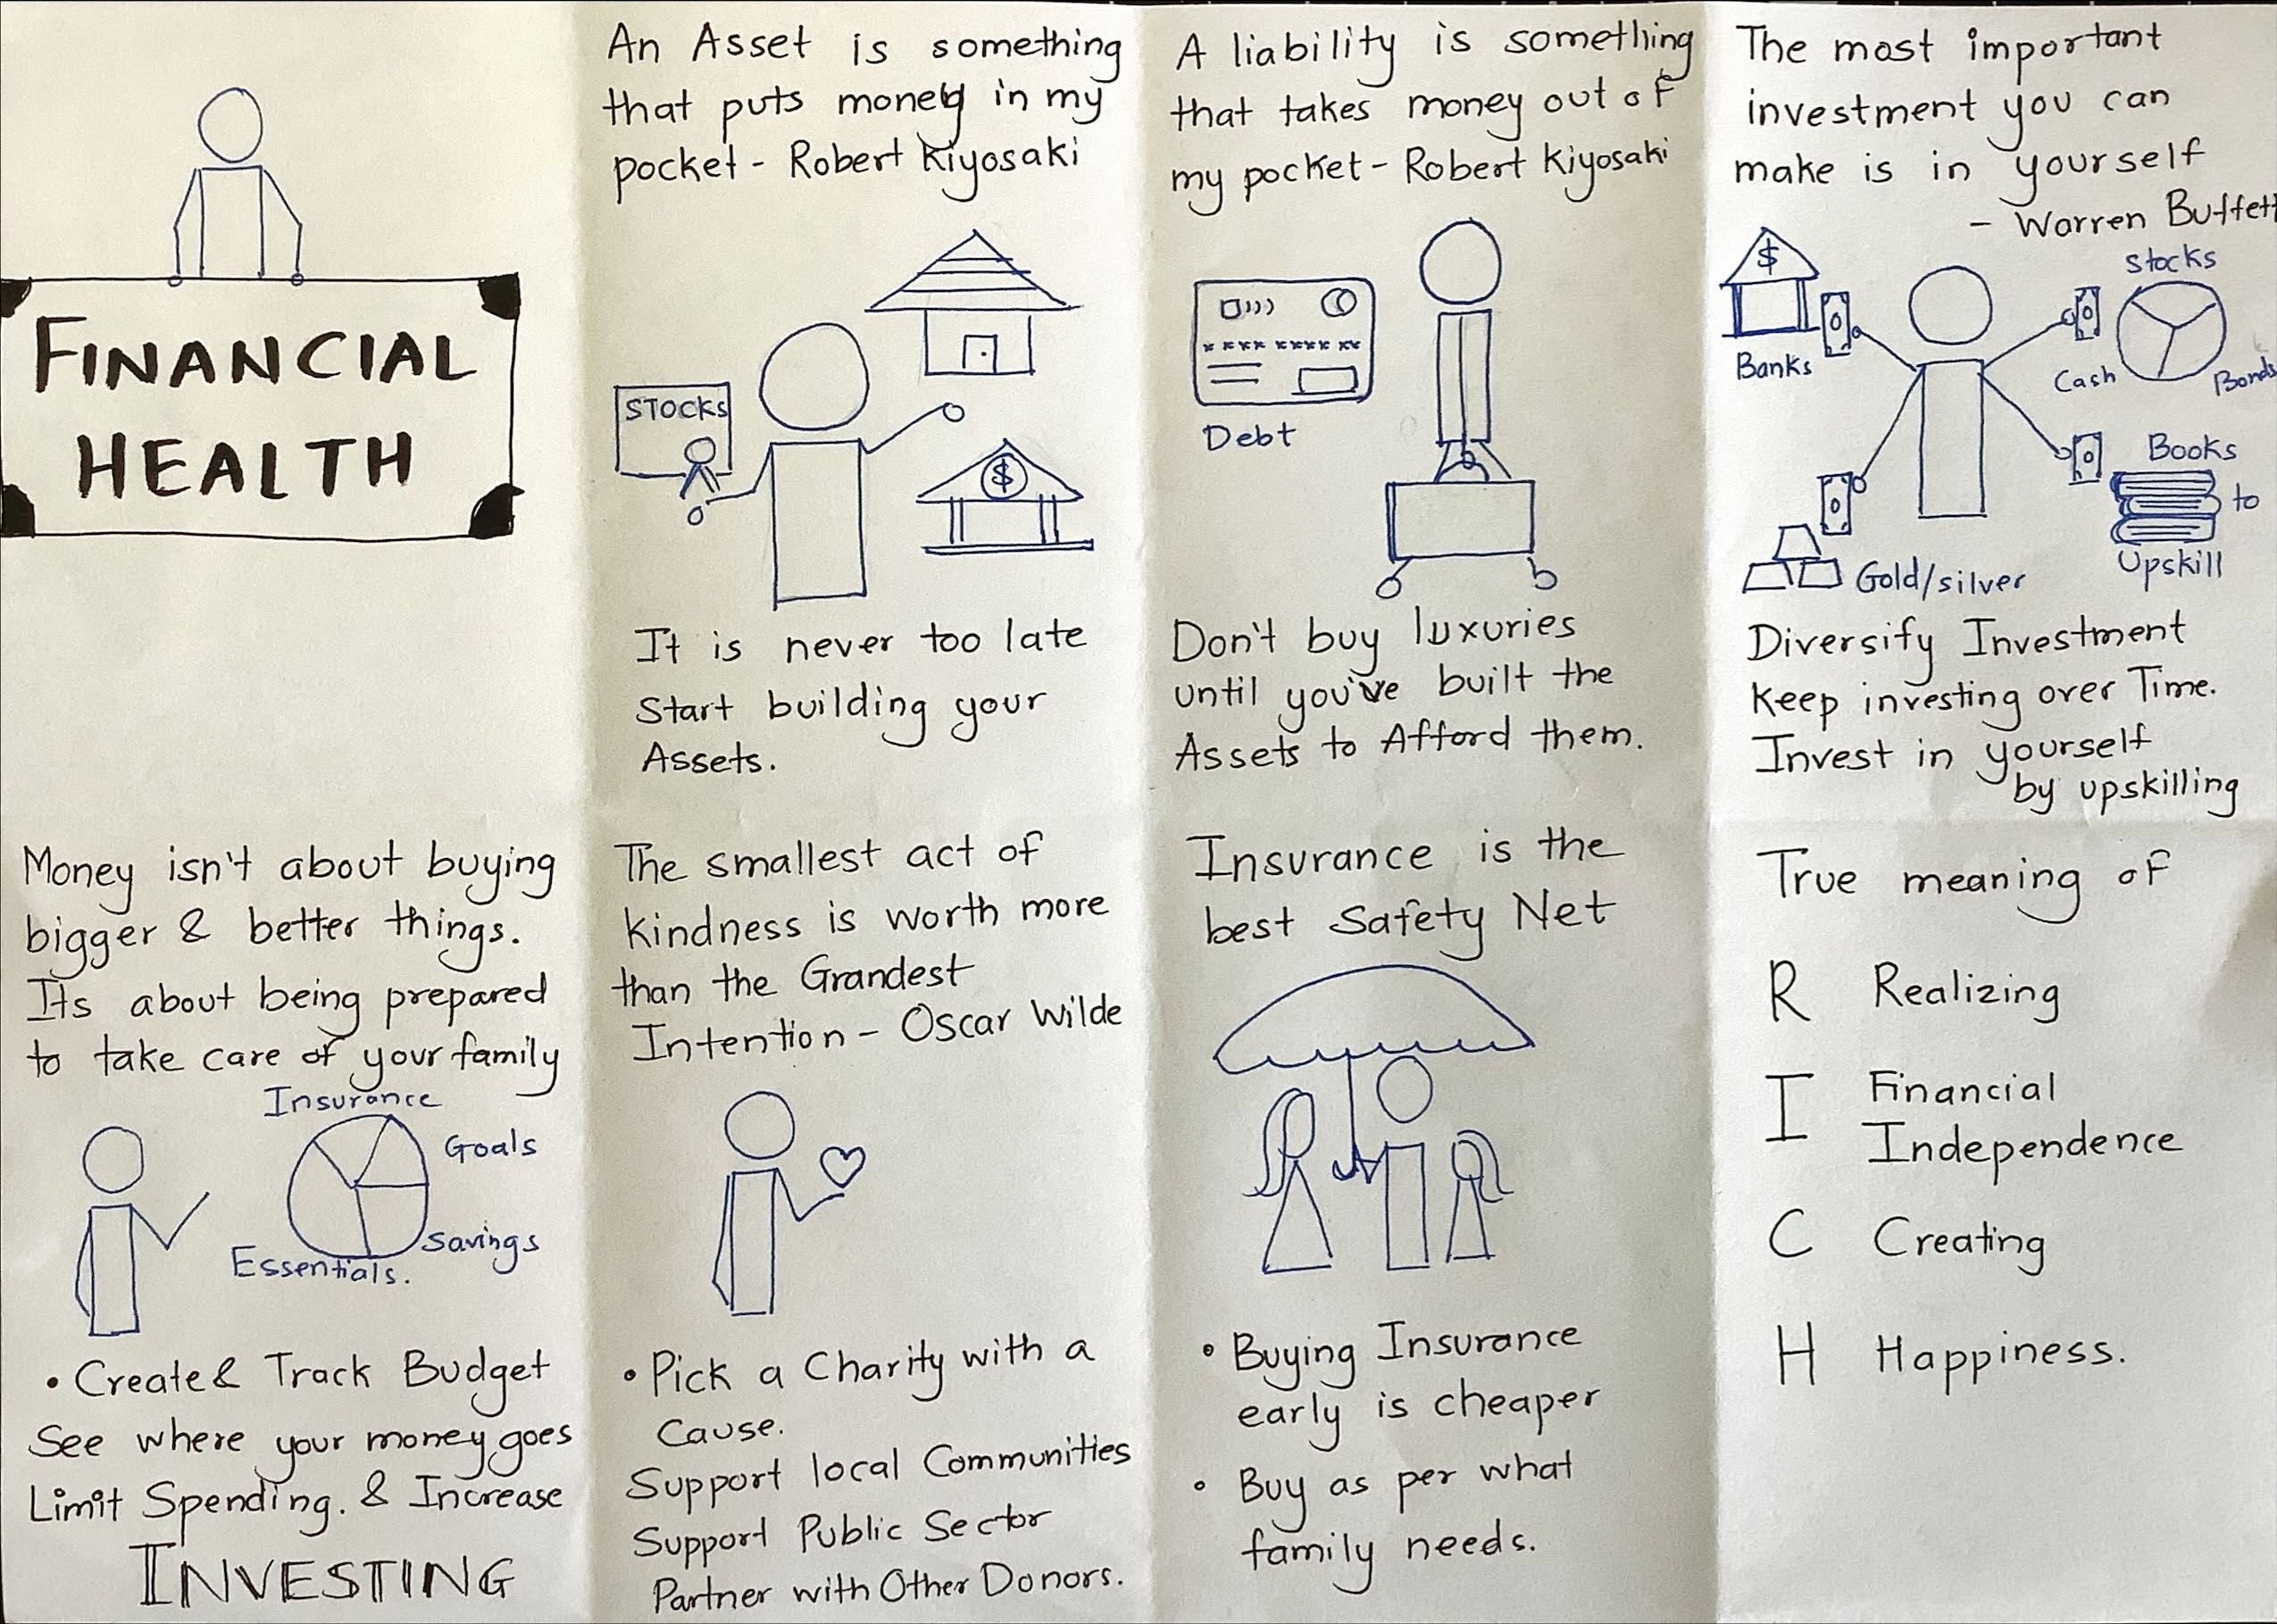 FINANCIAL
HEALTH
An Asset is something
that puts money in my
pocket - Robert Kiyosaki
STOCKS
$
It is never too late
Start building your
Assets.
A liability is something
that takes money out of
my pocket - Robert Kiyosaki
**** **** **
Debt
Don't buy luxuries
until you've built the
Assets to Afford them.
The most important
investment you can
make is in yourself
- Warren Buffett
$
Banks
Stocks
Cash
Bonds
Books
to
Upskill
Gold/silver
Diversify Investment
Keep investing over Time.
Invest in yourself
by upskilling
Money isn't about buying
bigger & better things.
Its about being prepared
to take care of your family
Insurance
Goals
Savings
Essentials.
• Create & Track Budget
See where your money goes
Limit Spending. & Increase
INVESTING
The smallest act of
kindness is worth more
than the Grandest
Intention - Oscar Wilde
• Pick a Charity with a
Cause.
Support local Communities
Support Public Sector
Partner with Other Donors.
Insurance is the
best Safety Net
• Buying Insurance
early is cheaper
• Buy as per what
family needs.
True meaning of
R Realizing
I Financial
Independence
C Creating
H Happiness.